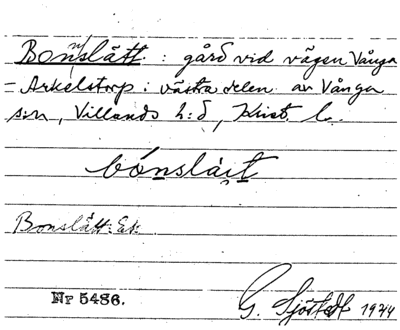 Bonslätt : gård vid vägen Vånga
– Arkelstorp i västra delen av Vånga
s:n, Villands h:d, Krist. l.
bónslàit
Bonslätt. Ek.
Nr 5486.
G. Sjöstedt 1944